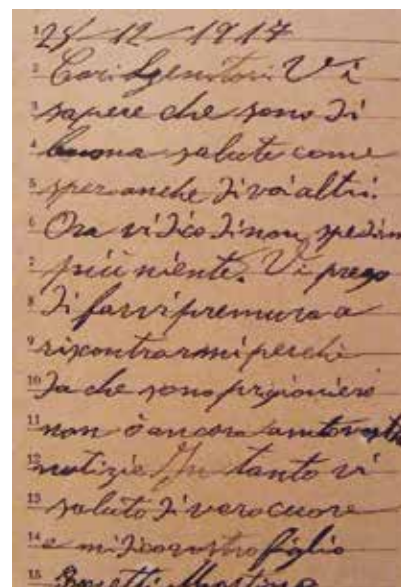 1 25/12/1917
2 Cari Genitori Vi
3 sapere che sono di
4 buona salute come
5 sper anche di voi altri.
6 Ora vi dico di non spedirmi
7 più niente. Vi prego
8 di farvi premura a
9 riscontrarmi perchè
10 da che sono prigioniero
11 non ò ancora
12 notizie In tanto vi
13 saluto di vero cuore
14 e mi dico vostro figlio
15